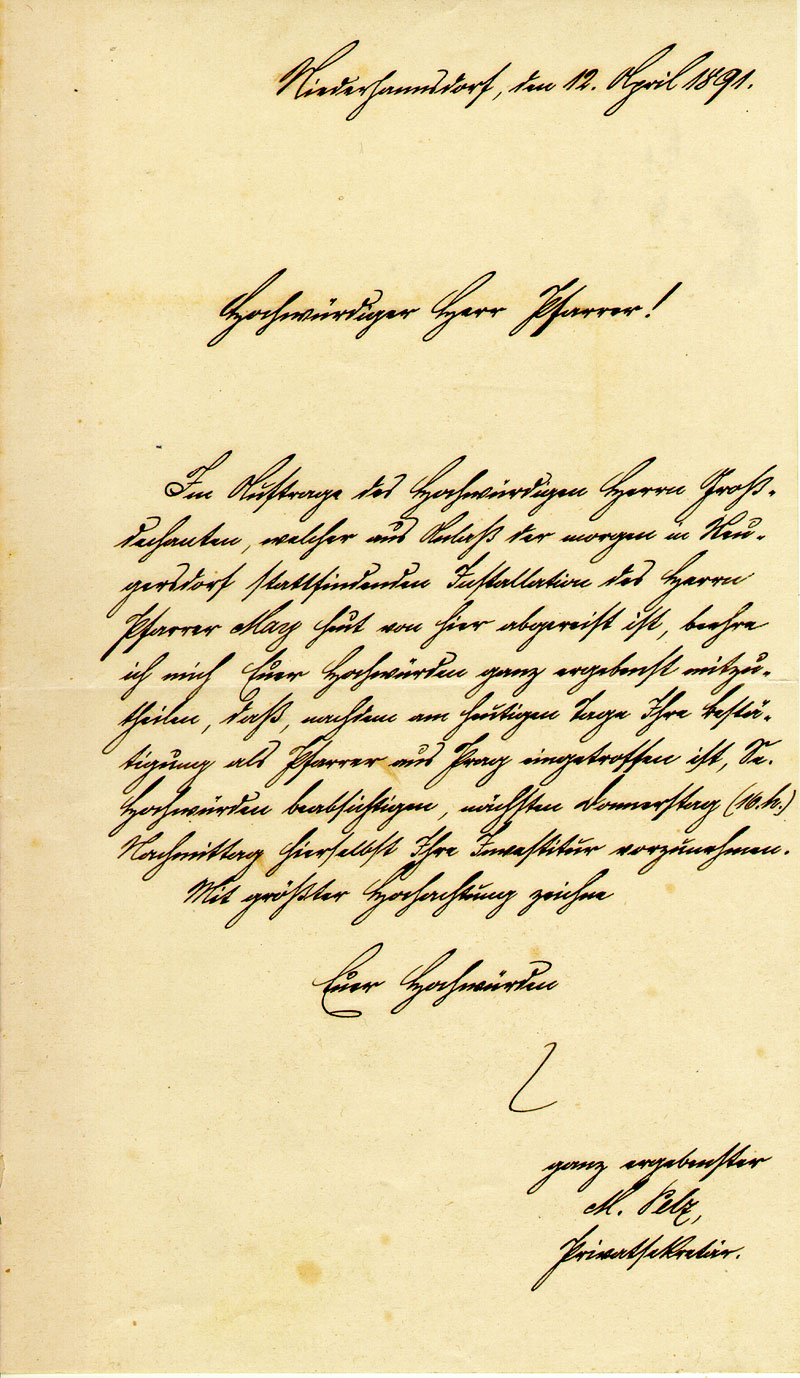 Niederhannsdorf, den 12. April 1891.
Hochwürdiger Herr Pfarrer!
Im Auftrage des Hochwürdigen Herrn Groß-
dechanten, welcher aus Anlaß der morgen in Neu-
gersdorf stattfindenden Installation des Herrn
Pfarrer Marx heut von hier abgereist ist, beehre
ich mich Euer Hochwürden ganz ergebenst mitzu-
theilen, daß, nachdem am heutigen Tage Ihre Bestä-
tigung als Pfarrer aus Prag eingetroffen ist, Se.
Hochwürden beabsichtigen, nächsten Donnerstag (16. h.)
Nachmittag hierselbst Ihre Investitur vorzunehmen.
Mit größter Hochachtung zeichne
Euer Hochwürden
ganz ergebenster
M. Pelz,
Privatsekretär.